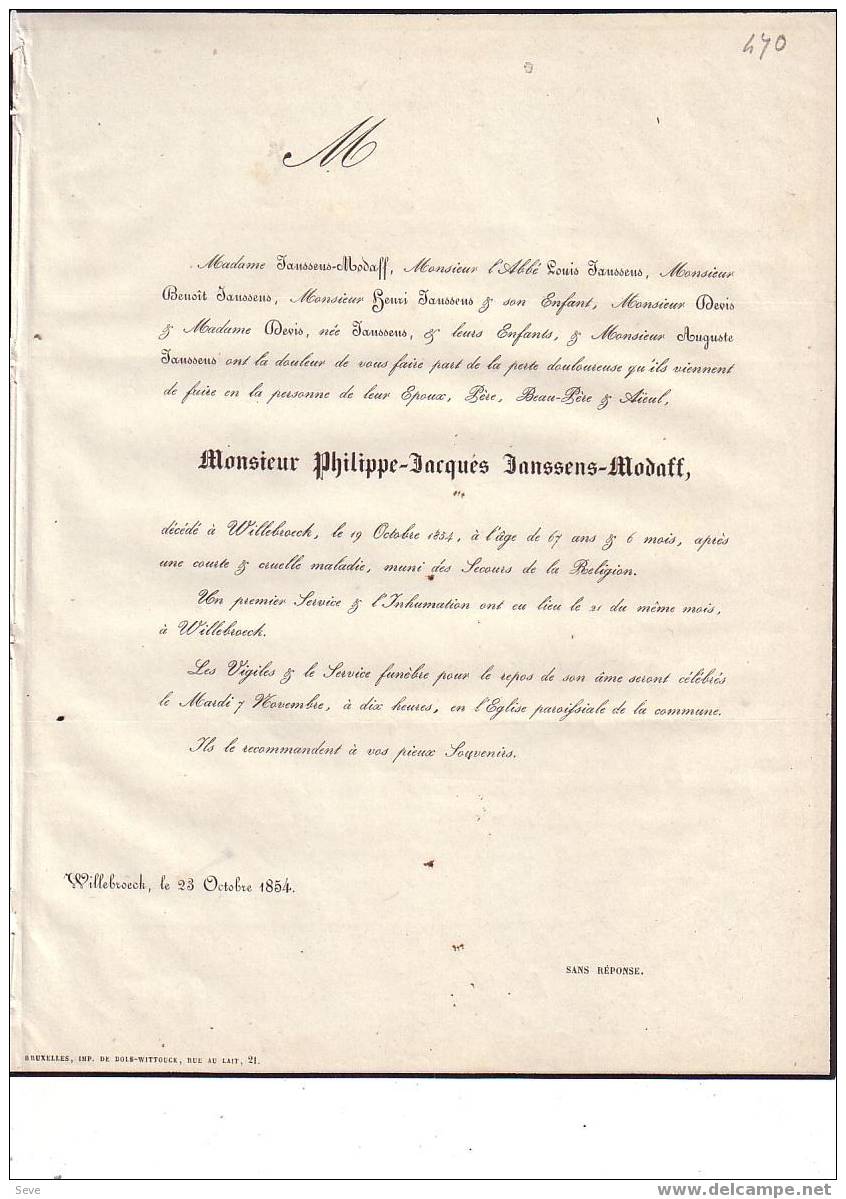 470
M
Madame Janssens-Modaff, Monsieur l'Abbé Louis Janssens, Monsieur
Benoît Janssens, Monsieur Henri Janssens & son Enfant, Monsieur Devis
& Madame Devis, née Janssens, & leurs Enfants, & Monsieur Auguste
Janssens ont la douleur de vous faire part de la perte douloureuse qu'ils viennent
de faire en la personne de leur Epoux, Père, Beau-Père & Aïeul,
Monsieur Philippe-Jacques Janssens-Modaff,
décédé à Willebroeck, le 19 Octobre 1854, à l'âge de 67 ans & 6 mois, après
une courte & cruelle maladie, muni des Secours de la Religion.
Un premier Service & l'Inhumation ont eu lieu le 21 du même mois,
à Willebroeck.
Les Vigiles & le Service funèbre pour le repos de son âme seront célébrés
le Mardi 7 Novembre, à dix heures, en l'Eglise paroissiale de la commune.
Ils le recommandent à vos pieux Souvenirs.
Willebroeck, le 23 Octobre 1854.
SANS RÉPONSE.
BRUXELLES, IMP. DE DOLS-WITTOUCK, RUE AU LAIT, 21.
Seve
www.delcampe.net